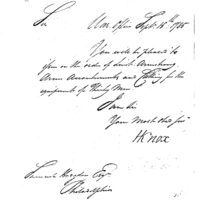 Sir War Office Sept. 16th 1785
You will be pleased to
issue on the order of Lieut Armstrong
Arms Accoutrements and Clothing for the
compleatment of Thirty Men
I am Sir
Your Most Obed Serv
HKnox
Samuel Hodgdon Esqr
Philadelphia